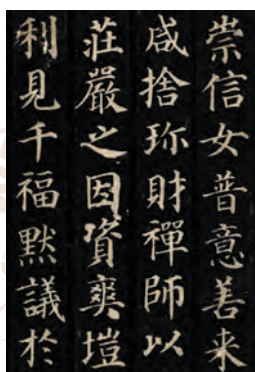 崇信女普意善来
咸捨珎財禪師以
莊嚴之因資爽塏
利見千福默議於